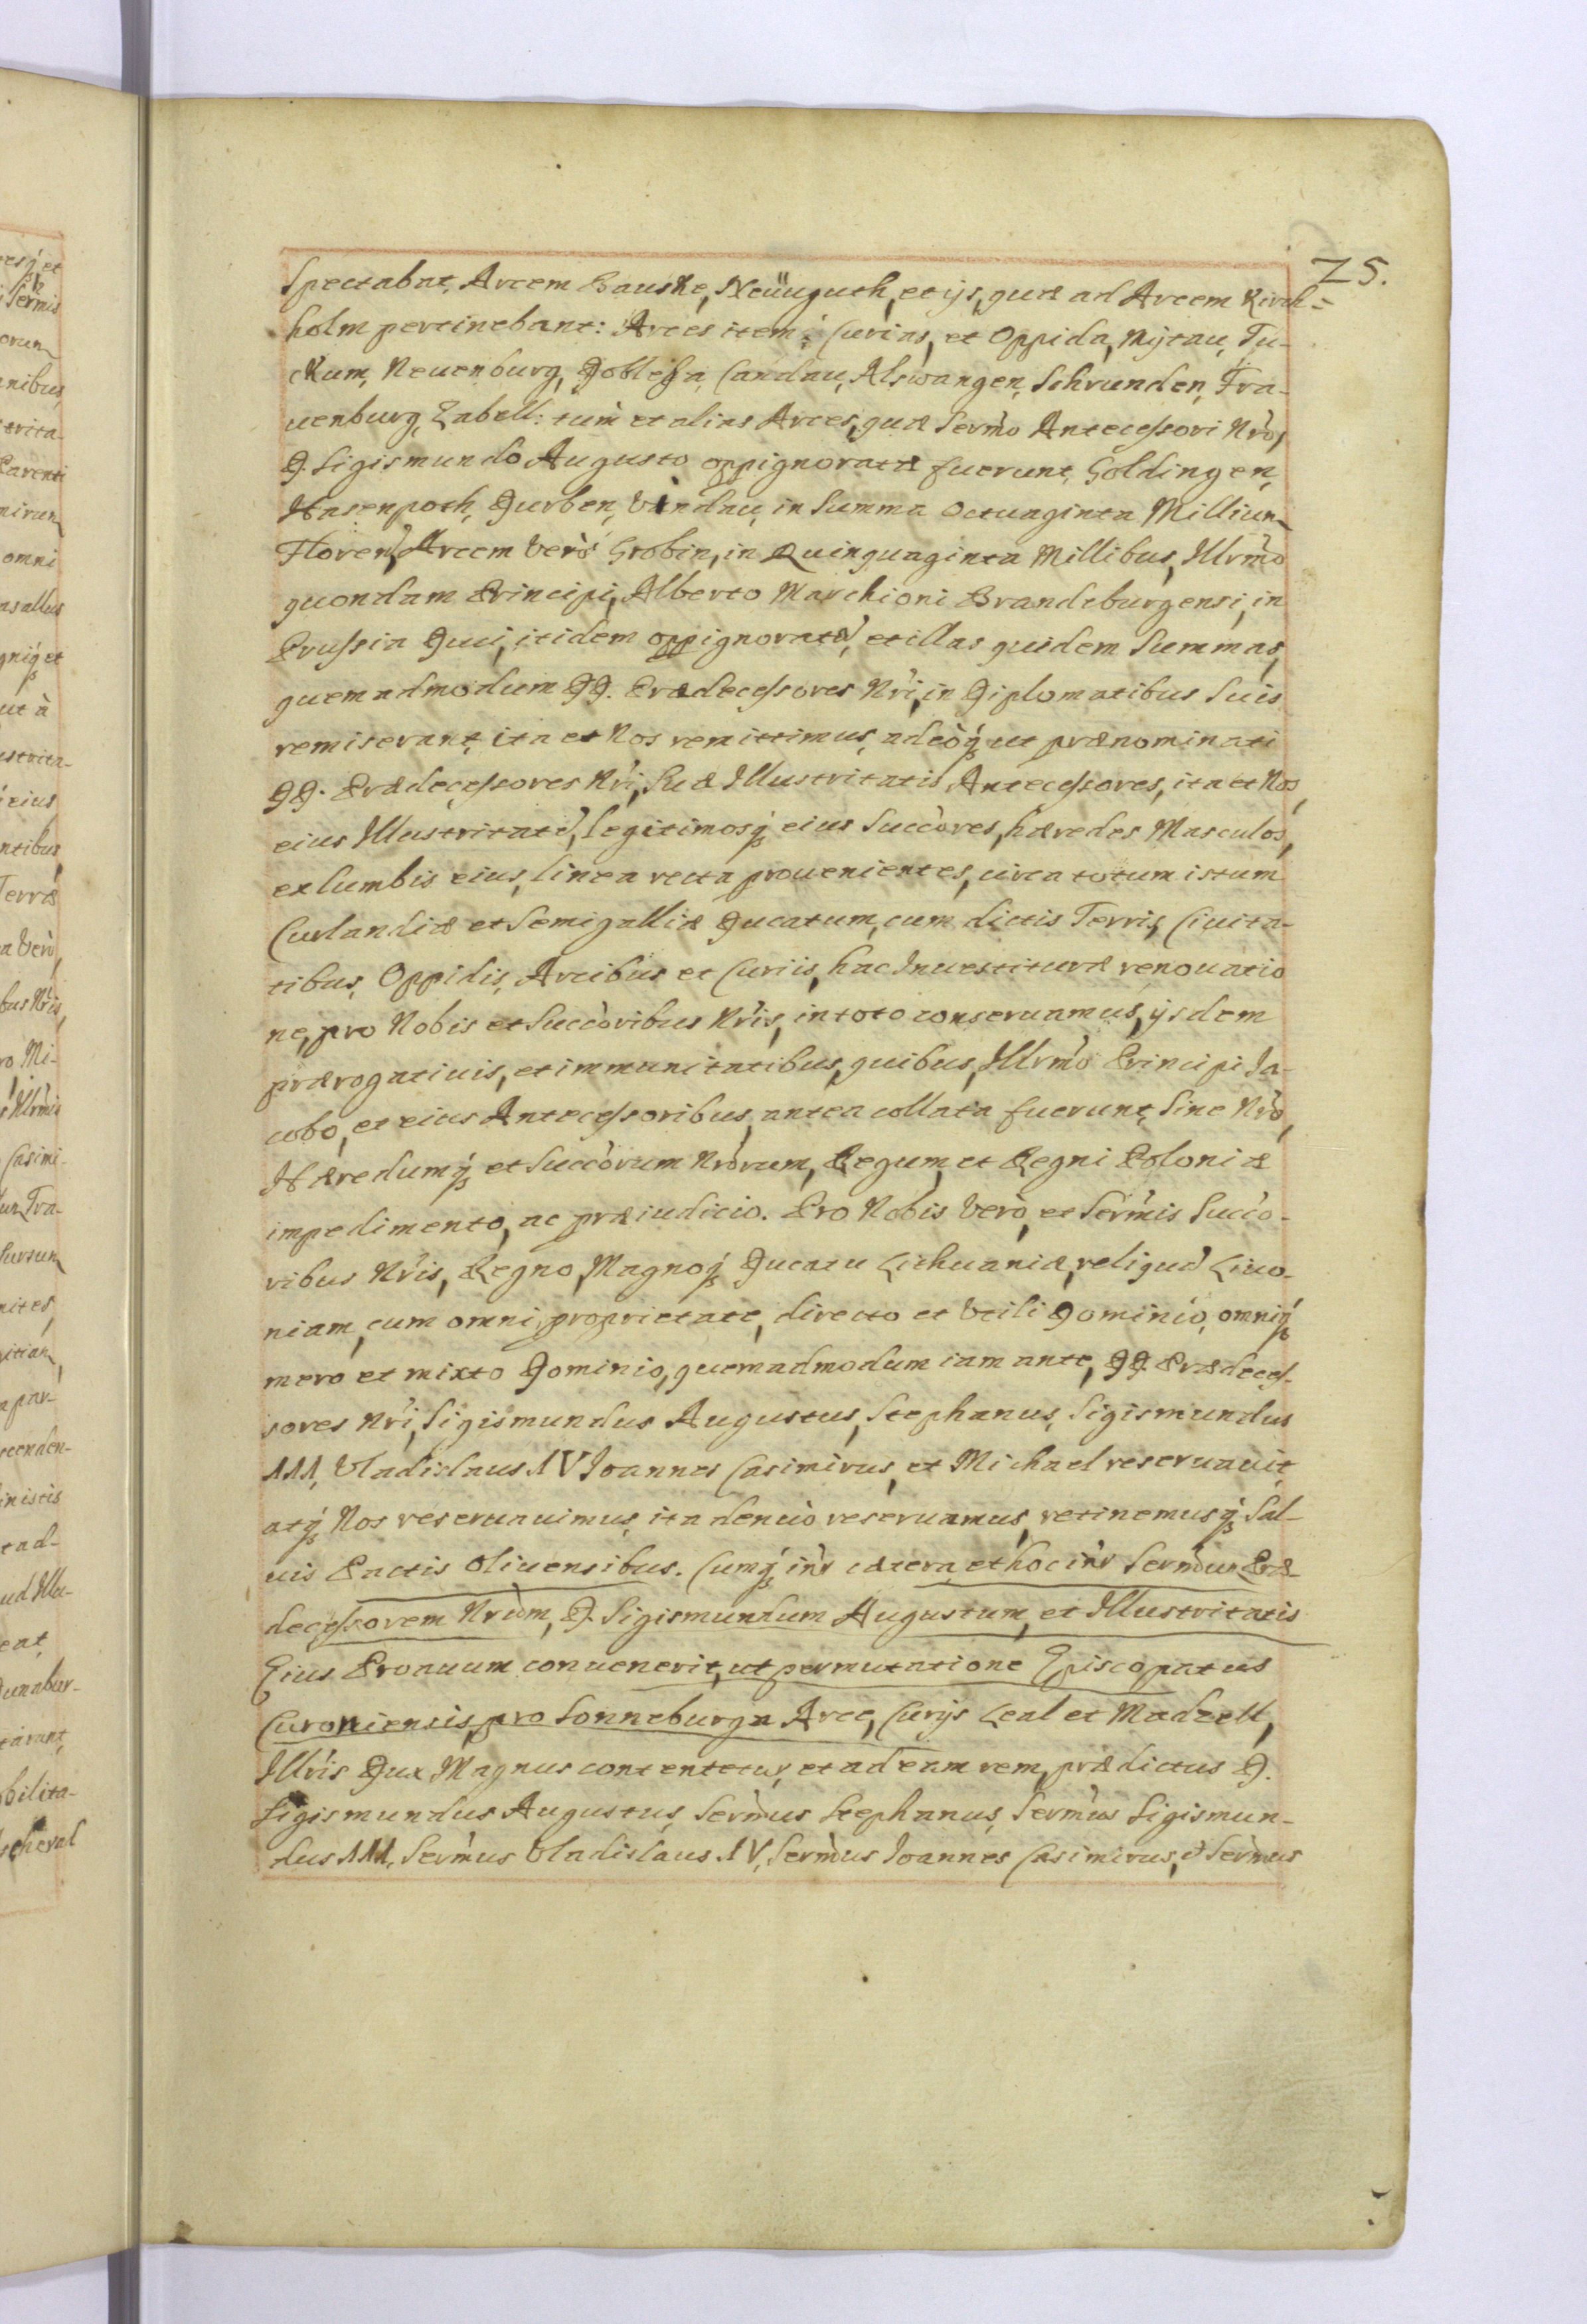 25.
Spectabat, Arcem Bauske, Neüuguth, et ijs, quæ ad Arcem Kirck=
holm pertinebant: Arces item: Curias, et Oppida, Mÿtau, Tu-
ckum, Neuenburg, Doblehn, Candau, Alswangen, Schrunden, Fra-
uenburg, Zabell: tum et alias Arces, quæ Sermo Antecessori Nro,
D. Sigismundo Augusto oppignoratæ fuerunt, Goldingen,
Hasenpoth, Durben, Vindau, in Summa Octuaginta Millium
Floren, Arcem Verò Grobin, in Quinquaginta Millibus, Illrmo
quondam Principi, Alberto Marchioni Brandeburgensi, in
Prussia Duci, itidem oppignoratã, et illas quidem Summas,
quemadmodum DD. Prædecessores Nri, in Diplomatibus Suis
remiserant, ita et Nos remittimus, adeoq ut prænominati
DD. Prædecessores Nri, Suæ Illustritatis Antecessores, ita et Nos,
eius Illustritatẽ, legitimosq eius Succòres, hæredes Masculos,
ex lumbis eius, linea recta prouenientes, circa totum istum
Curlandiæ et Semigalliæ Ducatum, cum dictis Terris, Ciuita-
tibus, Oppidis, Arcibus et Curiis, hac Inuestituræ renouatio
ne, pro Nobis et Succòribus Nris, in toto conseruamus, ijsdem
prærogatiuis, et immunitatibus, quibus, Illrmo Principi Ja-
cobo, et eius Antecessoribus, antea collata fuerunt, Sine Nro,
Hæredumq et Succòrum Nrorum, Regum, et Regni Poloniæ
impedimento, ac præiudicio. Pro Nobis Verò, et Sermis Succo-
ribus Nris, Regno, Magnoq Ducatu Lithuaniæ, reliquã Liuo-
niam, cum omni proprietate, directo et Vtili Dominio, omniq
mero et mixto Dominio, quemadmodum iam ante, DD. Prædeces-
sores Nri, Sigismundus Augustus, Stephanus, Sigismundus
III, Vladislaus IV Joannes Casimirus, et Michael reseruauit,
atq Nos reseruauimus, ita denuò reseruamus, retinemusq Sal-
uis Pactis Oliuensibus. Cumq inr cætera, et hoc inr Sermum Præ-
decessorem Nrum, D. Sigismundum Augustum, et Illustritatis
Eius Proauum conuenerit, ut permutatione Episcopatus
Curoniensis, pro Sonneburga Arce, Curijs Leal et Madzell,
Illris Dux Magnus contentetur, et ad eam rem, prædictus D.
Sigismundus Augustus, Sermus Stephanus, Sermus Sigismun-
dus III, Sermus Vladislaus IV, Sermus Joannes Casimirus, & Sermus